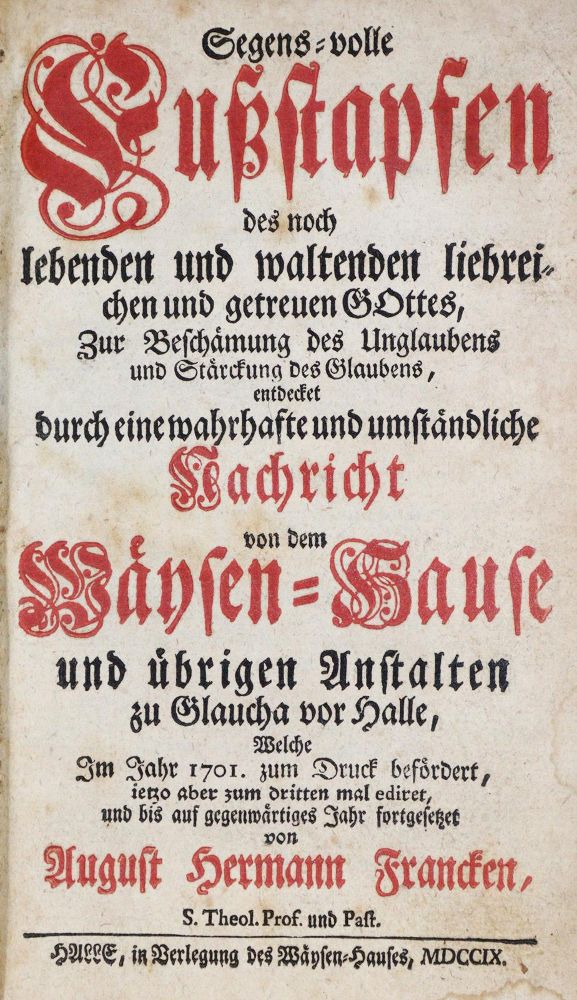 Segens-volle
Fußstapfen
des noch
lebenden und waltenden liebrei-
chen und getreuen GOttes,
Zur Beschämung des Unglaubens
und Stärckung des Glaubens,
entdecket
durch eine wahrhafte und umständliche
Nachricht
von dem
Wäysen-Hause
und übrigen Anstalten
zu Glaucha vor Halle,
Welche
Im Jahr 1701. zum Druck befördert,
ietzo aber zum dritten mal ediret,
und bis auf gegenwärtiges Jahr fortgesetzet
von
August Hermann Francken,
S. Theol. Prof. und Past.
HALLE, in Verlegung des Wäysen-Hauses, MDCCIX.